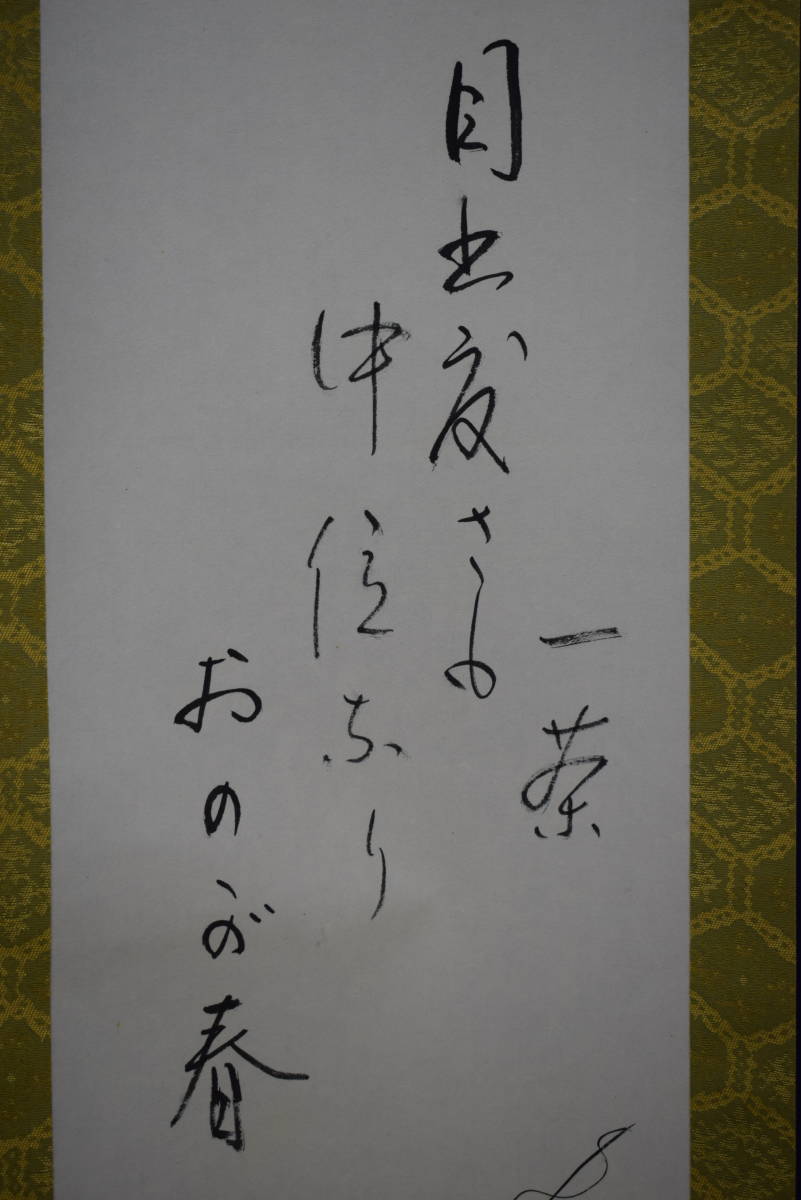 一茶
目出度さも
仲位なり
おのが春